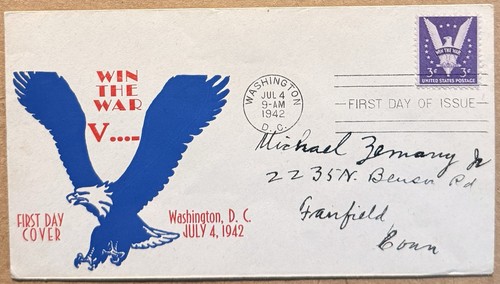 WIN
THE
WAR
V...-
FIRST DAY
COVER
Washington, D. C.
JULY 4, 1942
WASHINGTON
JUL 4
9-AM
1942
D.C.
FIRST DAY OF ISSUE
WIN THE WAR
3¢ 3¢
UNITED STATES POSTAGE
Michael Zemany Jr
2235 N. Benson Rd
Fairfield
Conn